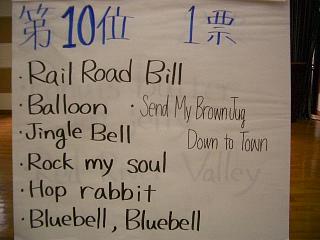 第10位 1票
・Rail Road Bill
・Balloon ・Send My Brown Jug
Down to Town
・Jingle Bell
・Rock my soul
・Hop rabbit
・Bluebell, Bluebell